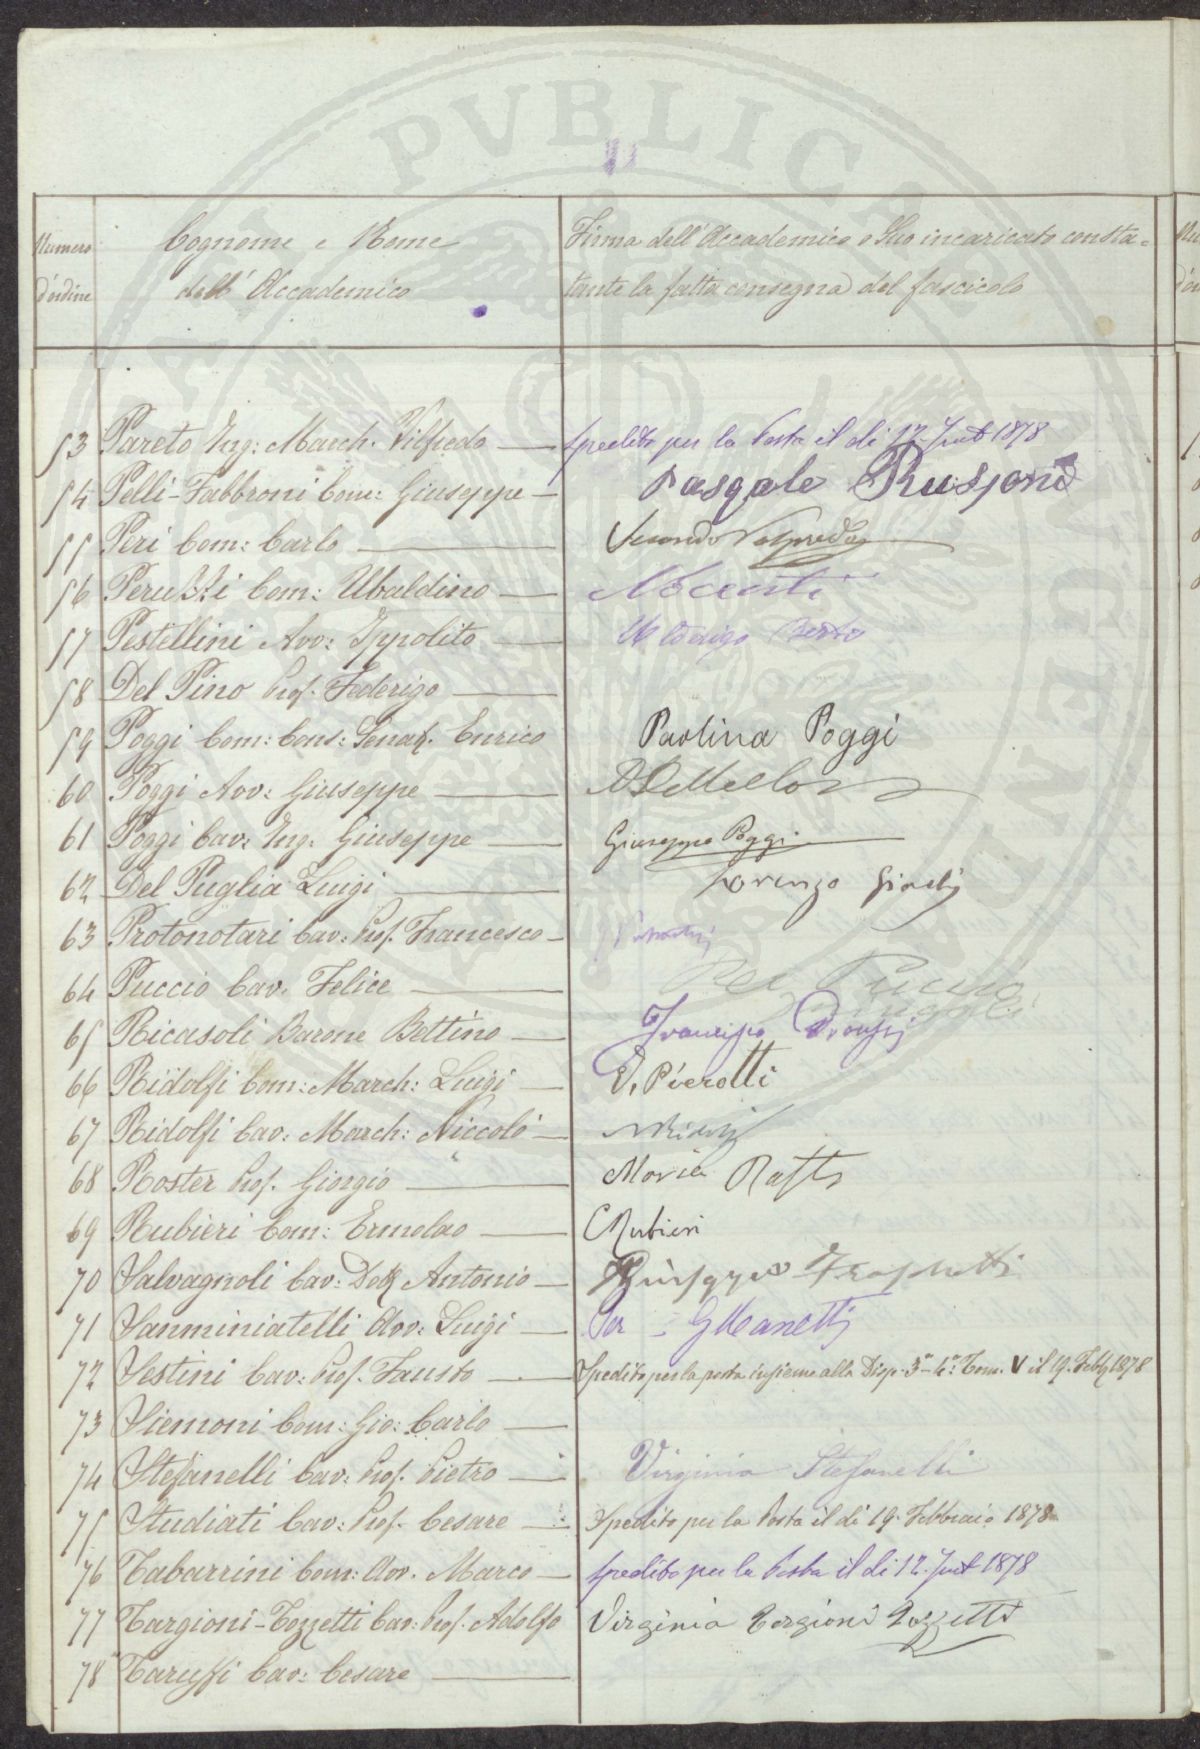 PVBLICAE
Numero
d'ordine
Cognome e Nome
dell'Accademico
Firma dell'Accademico o Suo incaricato consta=
tante la fatta consegna del fascicolo
53 Pareto Ing: March. Vilfredo spedito per la Posta il dì 12. 1878
54 Pelli-Fabbroni Com: Giuseppe Pasquale
55 Peri Com: Carlo
56 Peruzzi Com: Ubaldino Nocenti
57 Pestellini Avv: Ippolito
58 Del Pino Prof. Federigo
59 Poggi Com: Cons: Senat. Enrico Paolina Poggi
60 Poggi Avv: Giuseppe
61 Poggi Cav: Ing. Giuseppe Giuseppe Poggi
62 Del Puglia Luigi Lorenzo
63 Protonotari Cav: Prof. Francesco
64 Puccio Cav. Felice Per Puccio
65 Ricasoli Barone Bettino
66 Ridolfi Com: March: Luigi V. Pierotti
67 Ridolfi Cav: March: Niccolò
68 Roster Prof. Giorgio Maria
69 Rubieri Com: Ermolao Rubieri
70 Salvagnoli Cav: Dott Antonio Giuseppe
71 Sanminiatelli Avv: Luigi Per GManetti
72 Sestini Cav: Prof. Fausto Spedito per la posta insieme alla Disp. 3ª-4ª: Tom. V il 19. 1878
73 Siemoni Com: Gio: Carlo
74 Stefanelli Cav: Prof. Pietro Virginia Stefanelli
75 Studiati Cav: Prof. Cesare Spedito per la Posta il dì 19. Febbraio 1878
76 Tabarrini Com: Avv. Marco spedito per la Posta il dì 12. 1878
77 Targioni-Tozzetti Cav: Prof. Adolfo Virginia Targioni Tozzetti
78 Taruffi Cav: Cesare